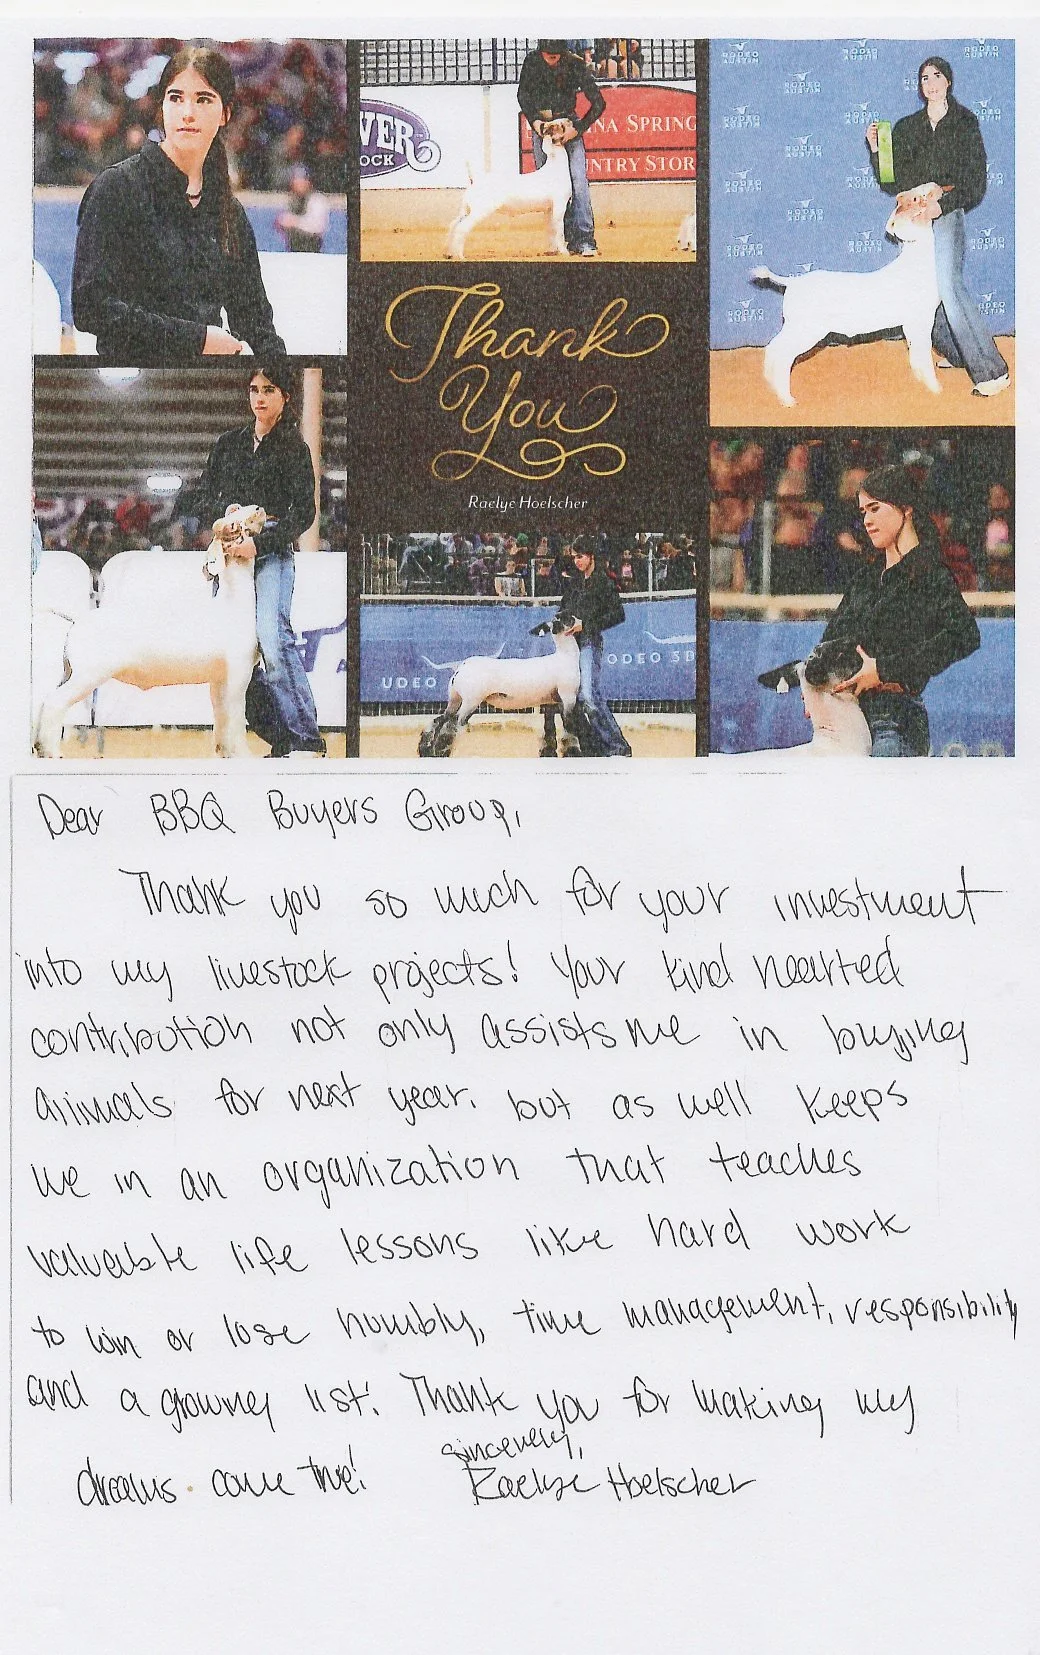 VER
OCK
NA SPRING
NTRY STOR
RODEO
AUSTIN
Thank
You
Raelye Hoelscher
UDEO
ODEO
Dear BBQ Buyers Group,
Thank you so much for your investment
into my livestock projects! Your kind hearted
contribution not only assists me in buying
animals for next year. but as well keeps
me in an organization that teaches
valuable life lessons like hard work
to win or lose humbly, time management, responsibility
and a growing list! Thank you for making my
dreams come true!
sincerely,
Raelye Hoelscher